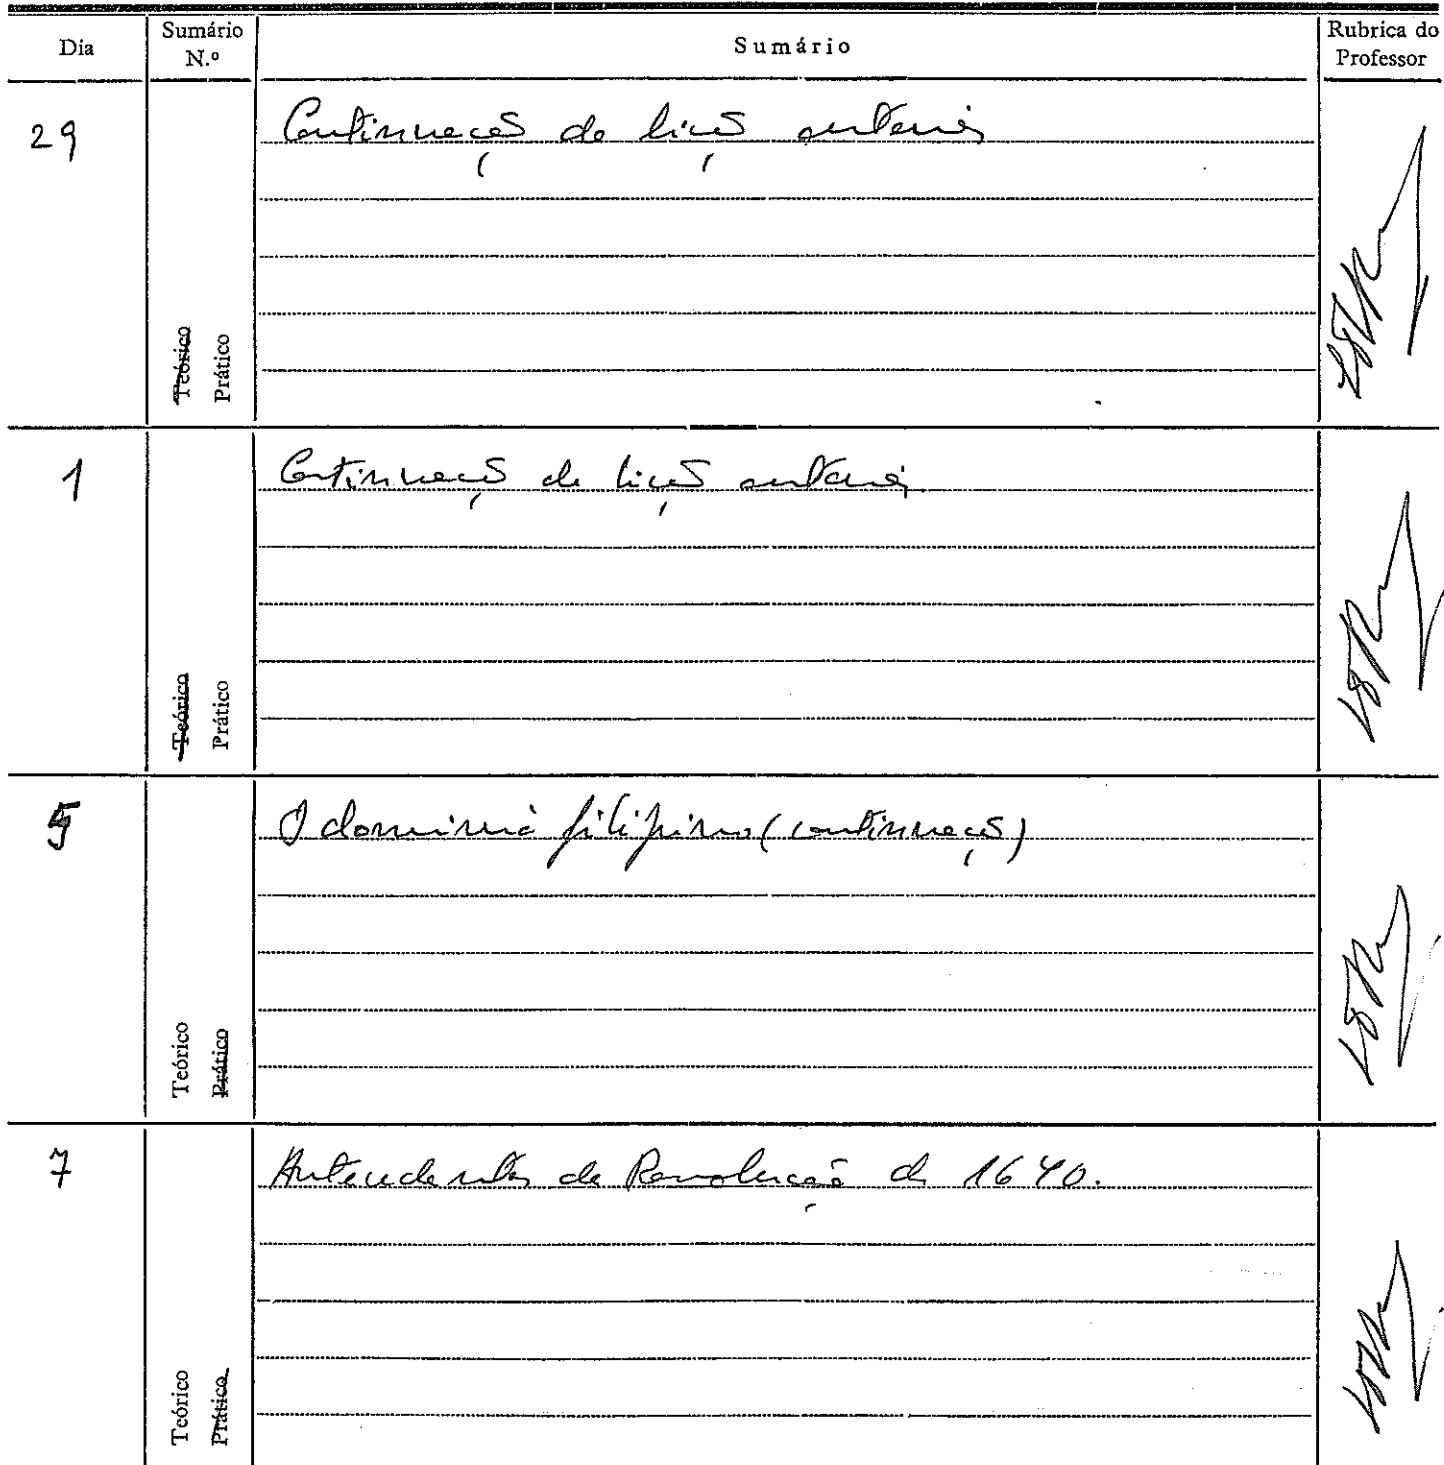 Dia
Sumário N.º
Sumário
Rubrica do Professor
29
Teórico
Prático
Continuação da lição anterior
1
Teórico
Prático
Continuação da lição anterior.
5
Teórico
Prático
O domínio filipino (continuação)
7
Teórico
Prático
Antecedentes da Revolução de 1640.